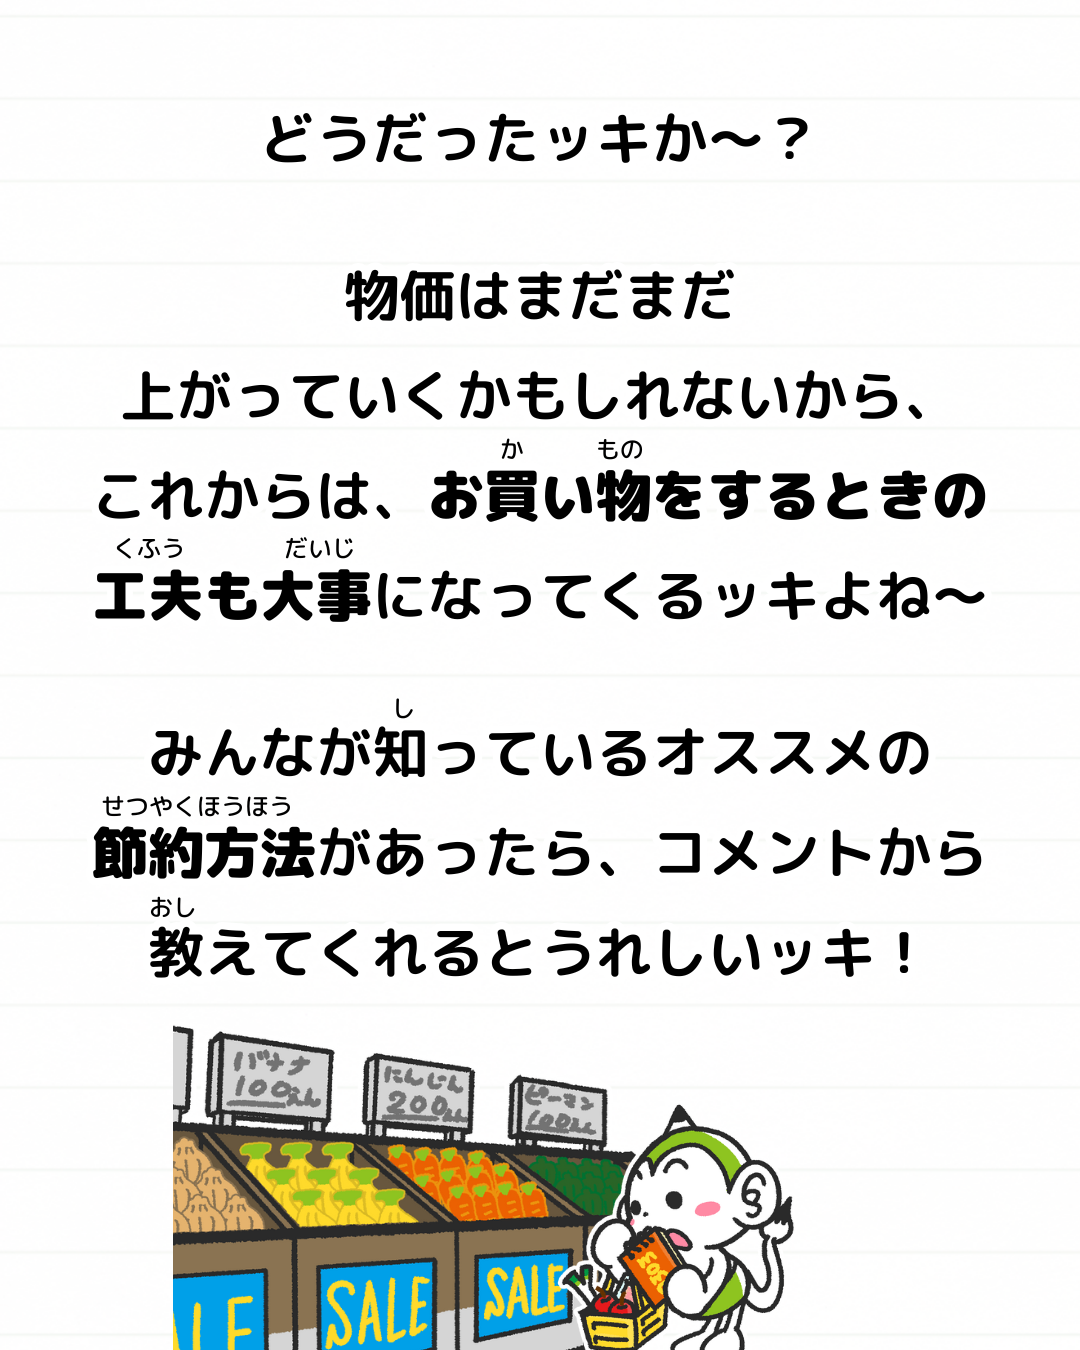 どうだったッキか～？
物価はまだまだ
上がっていくかもしれないから、
か もの
これからは、お買い物をするときの
くふう だいじ
工夫も大事になってくるッキよね～
し
みんなが知っているオススメの
せつやくほうほう
節約方法があったら、コメントから
おし
教えてくれるとうれしいッキ！
バナナ
100えん
にんじん
200えん
ピーマン
100えん
SALE
SALE